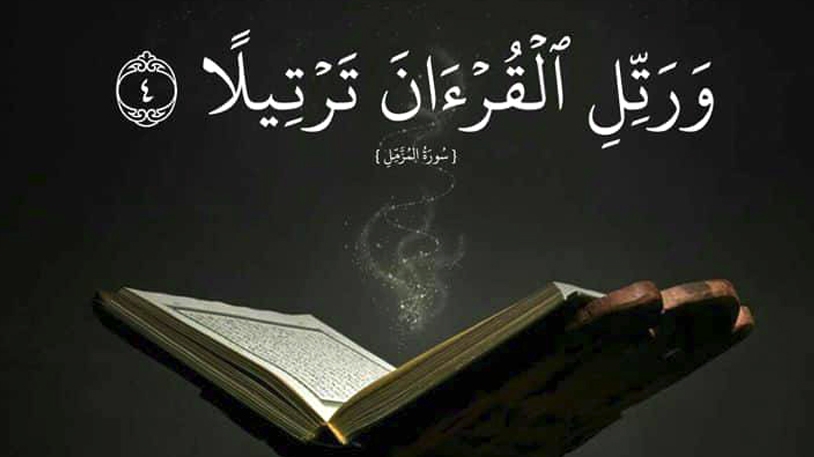 وَرَتِّلِ ٱلْقُرْءَانَ تَرْتِيلًا ٤
{ سُورَةُ المُزَّمِّلِ }